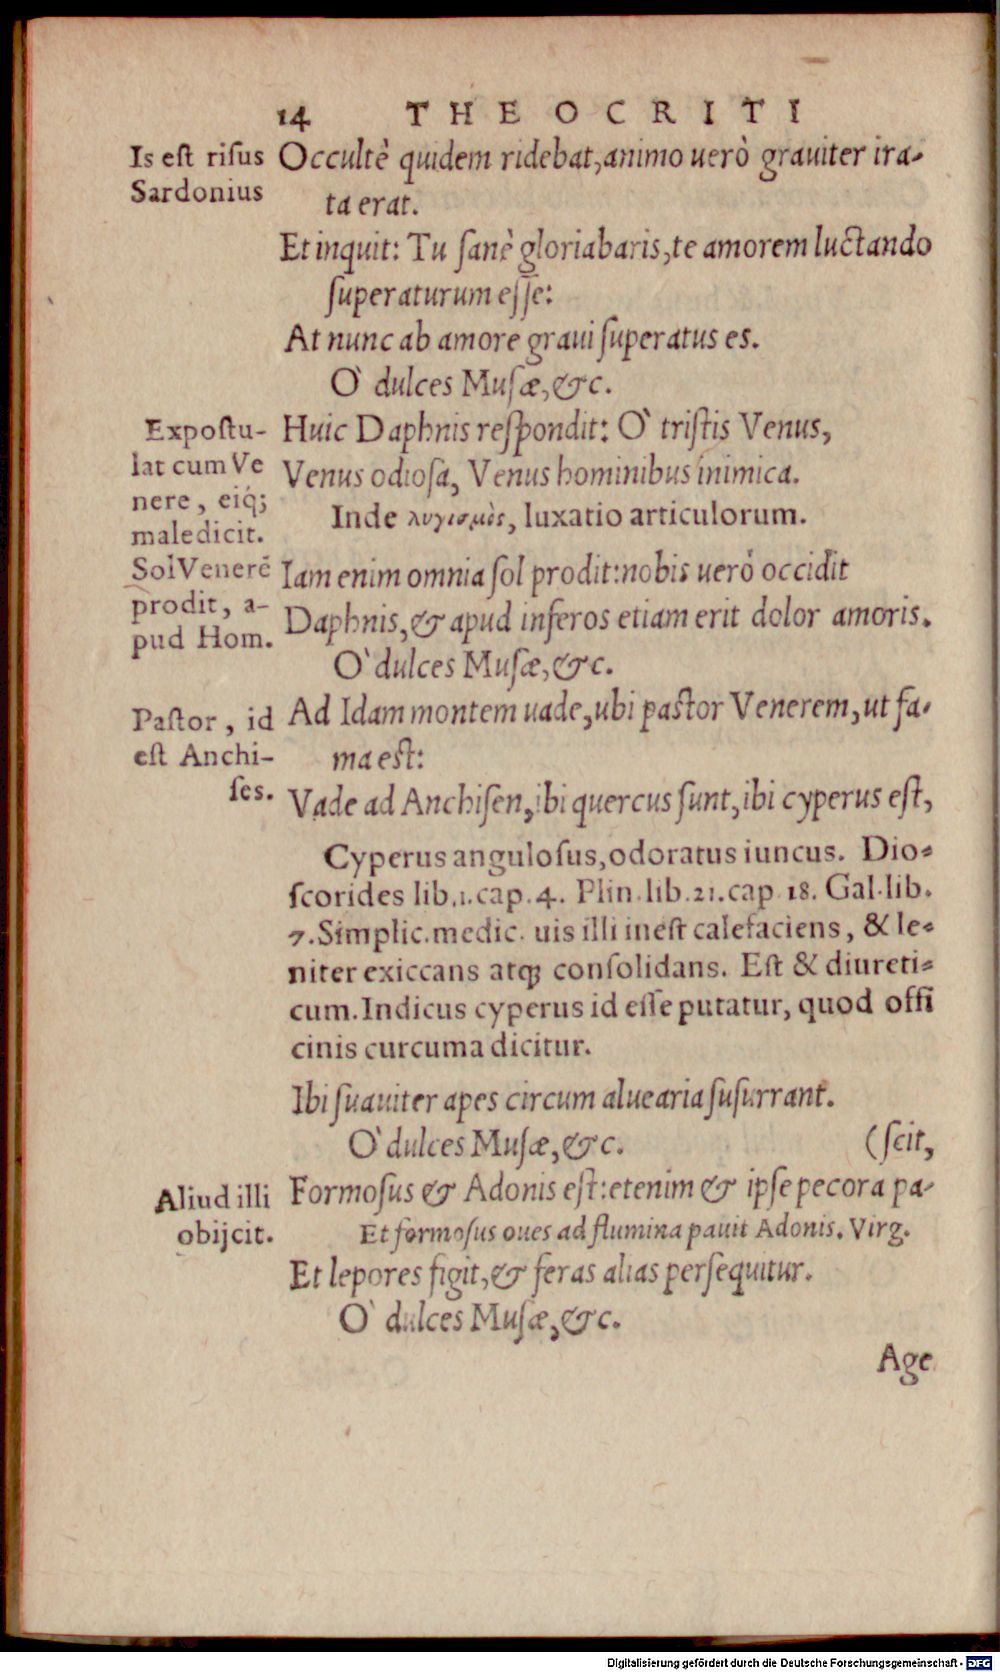 14 THEOCRITI
Is est risus
Sardonius
Occultè quidem ridebat, animo uerò grauiter ira-
ta erat.
Et inquit: Tu sanè gloriabaris, te amorem luctando
superaturum esse:
At nunc ab amore graui superatus es.
O` dulces Musæ, &c.
Expostu-
lat cum Ve
nere, eiq́;
maledicit.
Sol Venerē
prodit, a-
pud Hom.
Huic Daphnis respondit: O` tristis Venus,
Venus odiosa, Venus hominibus inimica.
Inde λυγισμὸς, luxatio articulorum.
Iam enim omnia sol prodit: nobis uerò occidit
Daphnis, & apud inferos etiam erit dolor amoris.
O` dulces Musæ, &c.
Pastor, id
est Anchi-
ses.
Ad Idam montem uade, ubi pastor Venerem, ut fa-
ma est:
Vade ad Anchisen, ibi quercus sunt, ibi cyperus est,
Cyperus angulosus, odoratus iuncus. Dio-
scorides lib.1.cap.4. Plin.lib.21.cap 18. Gal.lib.
7. Simplic.medic. uis illi inest calefaciens, & le-
niter exiccans atq; consolidans. Est & diureti-
cum. Indicus cyperus id esse putatur, quod offi
cinis curcuma dicitur.
Ibi suauiter apes circum aluearia susurrant.
O` dulces Musæ, &c. (scit,
Aliud illi
obijcit.
Formosus & Adonis est: etenim & ipse pecora pa-
Et formosus oues ad flumina pauit Adonis. Virg.
Et lepores figit, & feras alias persequitur.
O` dulces Musæ, &c.
Age
Digitalisierung gefördert durch die Deutsche Forschungsgemeinschaft - DFG